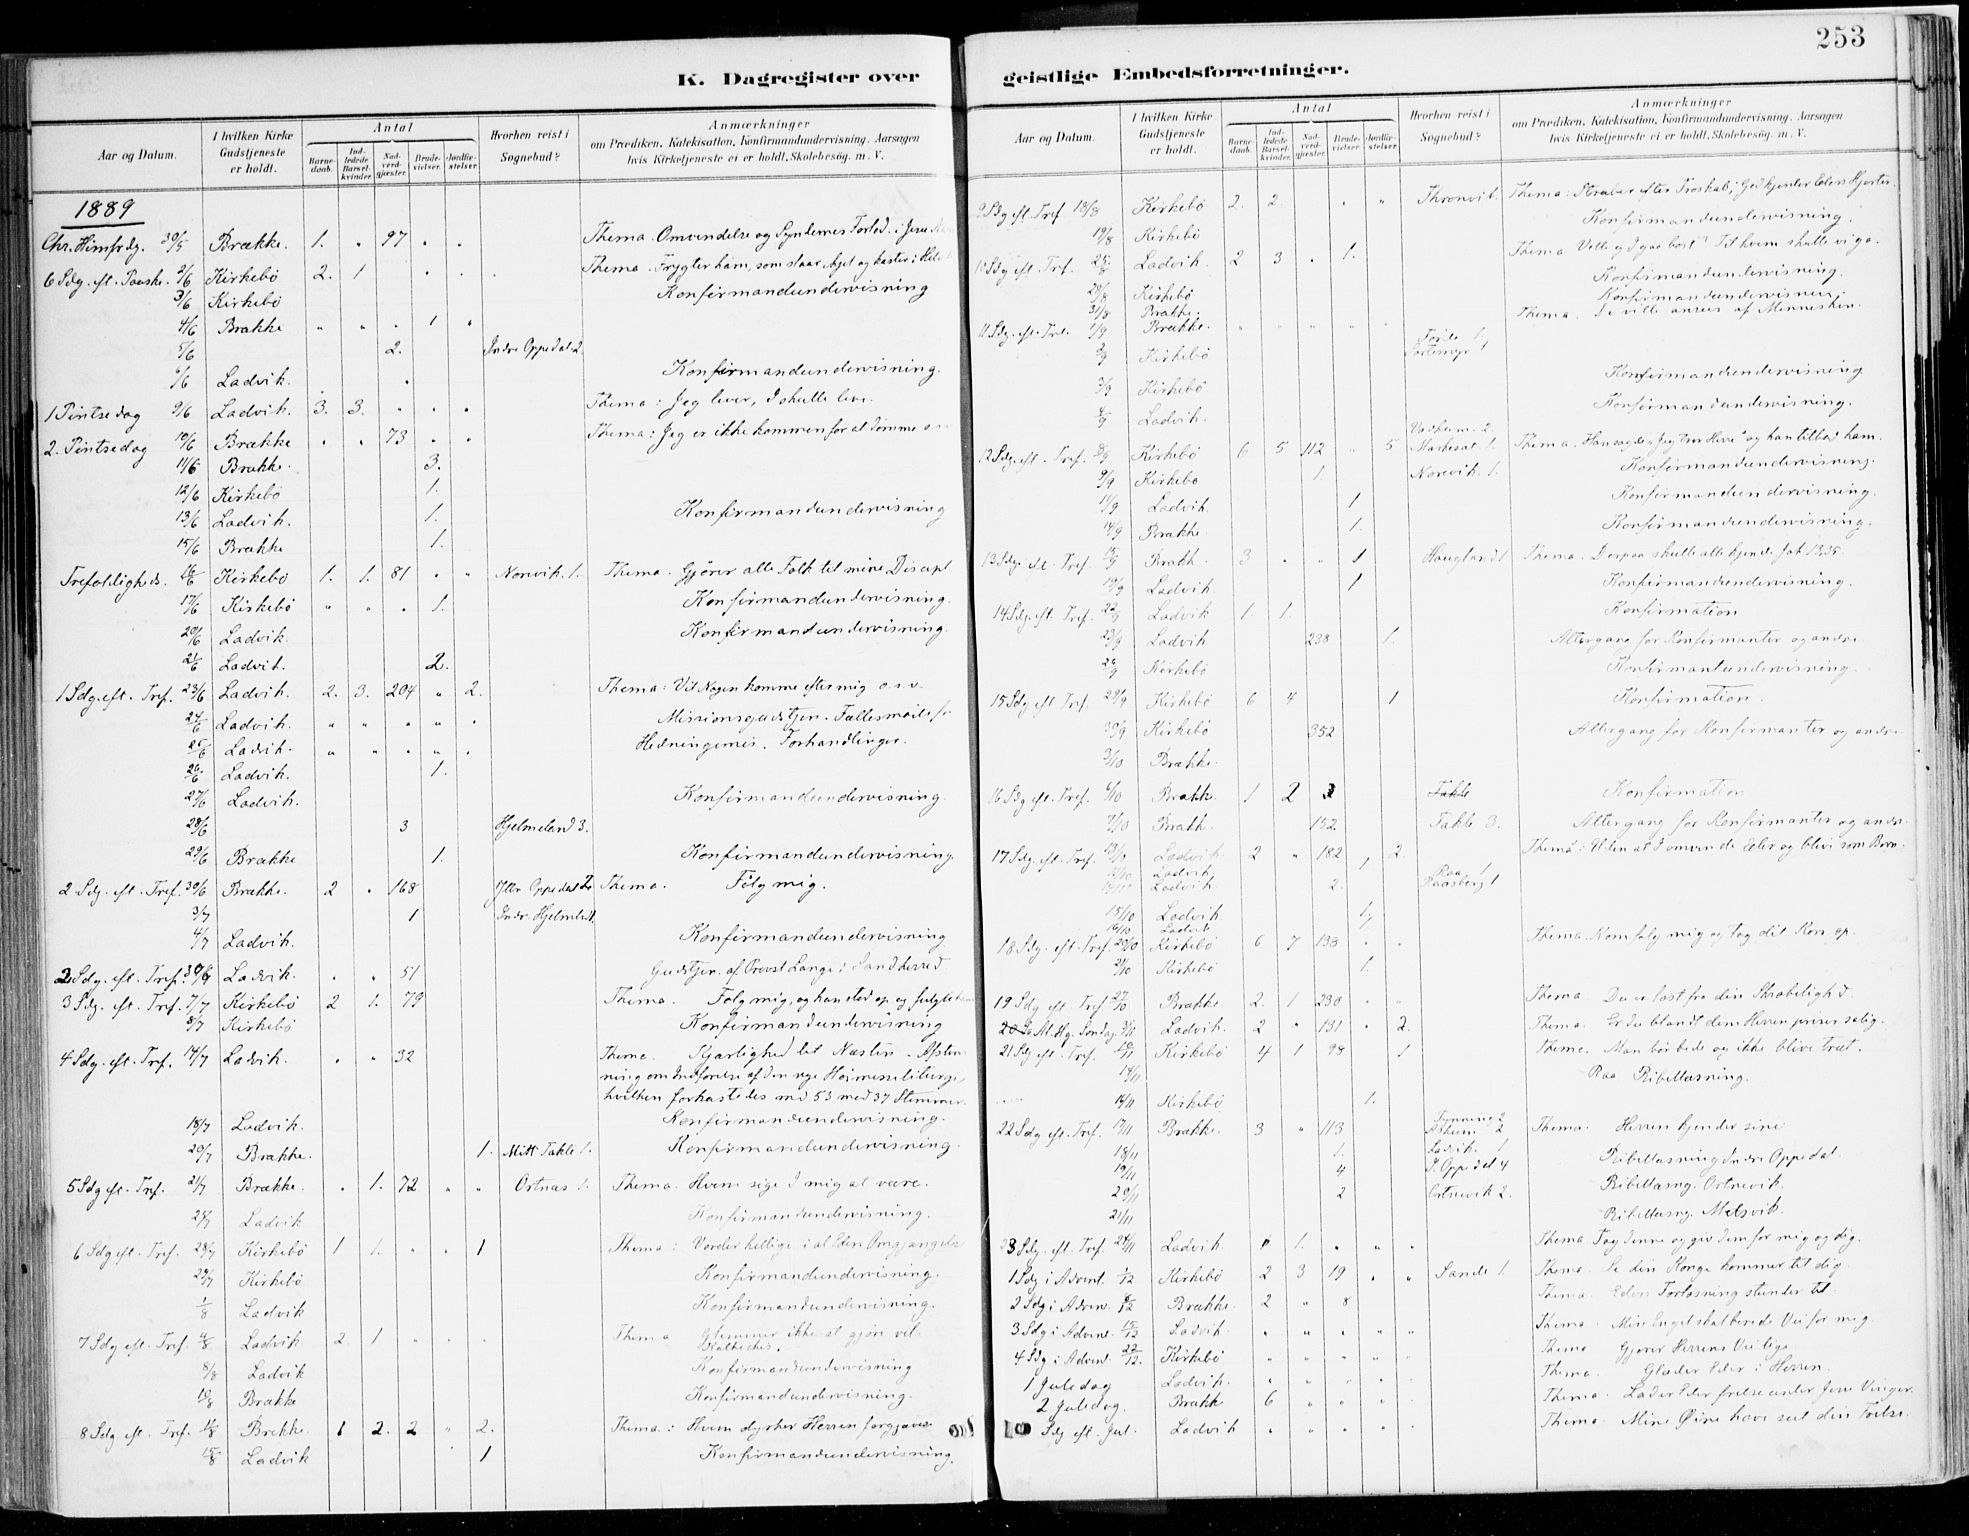 253
K. Dagregister over geistlige Embedsforretninger.
Aar og Datum. I hvilken Kirke Gudstjeneste er holdt. Antal Barnedaab. Indledede Barselkvinder. Nadverdgjæster. Brudevielser. Jordfæstelser. Hvorhen reist i Sognebud? Anmærkninger om Prædiken, Katekisation, Konfirmandundervisning, Aarsagen hvis Kirketjeneste ei er holdt, Skolebesøg. m. V.
1889
Chr. Himfrdg. 30/5 Brække. 1. " 97 " " Thema. Omvendelse og Syndernes Forlad. i Jesu
6 Sdg. eft. Paaske. 2/6 Kirkebö 2. 1 " " " Thema. Frygter ham, som slaar ihjel og kaster i
3/6 Kirkebö Konfirmandundervisning
4/6 Brække " " " 1 "
5/6 2. Indre Oppedal 2.
6/6 Ladvik. Konfirmandundervisning.
1 Pintsedag 9/6 Ladvik. 3. 3. " " " Thema: Jeg lever, I skulle leve.
2. Pintsedag 10/6 Brække " " 73 " " Thema: Jeg er ikke kommen for at dömme
11/6 Brække. 3.
12/6 Kirkebö 1.
13/6 Ladvik. 1. Konfirmandundervisning
15/6 Brække 1.
Trefoldigheds. 16/6 Kirkebö 1. 1. 81 " " Norevik. 1. Thema. Gjörer alle Folk til mine Discipl
17/6 Kirkebö " " " 1. Konfirmandundervisning.
20/6 Ladvik. Konfirmandundervisning.
21/6 Ladvik. 2.
1 Sdg. eft. Tref. 23/6 Ladvik. 2. 3. 204 " 2. Thema: Vil Nogen komme efter mig o.s.v.
24/6 Ladvik. " " " " " Missionsgudstjen. Fællesmöde for
25/6 Ladvik. " " " " " Hedningemis. Forhandlinger.
26/6 Ladvik. 1.
27/6 Ladvik. Konfirmandundervisning.
28/6 3 Hjelmeland 3.
29/6 Brække 1. Konfirmandundervisning.
2 Sdg. eft. Tref. 30/6 Brække. 2 " 168 Ytre Oppedal 2. Thema. Fölg mig.
3/7 1 Indr. Hjelmel. 1.
4/7 Ladvik. Konfirmandundervisning
2 Sdg. eft. Tref. 30/6 Ladvik. " " 51 Gudstjen. af Provst Lange i Sandherred
3 Sdg. eft. Tref. 7/7 Kirkebö 2 1. 79 Thema. Fölg mig, og han stod op og fulgte ham
8/7 Kirkebö Konfirmandundervisning
4 Sdg. eft. Tref. 14/7 Ladvik. " " 32 Thema. Kjærlighed til Næsten. Afstem-
ning om Indförelse af den nye Höimesseliturgi,
hvilken forkastedes med 53 mod 37 Stemmer.
18/7 Ladvik. Konfirmandundervisning.
20/7 Brække. 1. Mitt Takle 1. Konfirmandundervisning.
5 Sdg eft. Tref. 21/7 Brække. " 1. 72 " " Ortnæs 1. Thema. Hvem sige I mig at være.
24/7 Ladvik Konfirmandundervisning.
6 Sdg eft. Tref. 28/7 Kirkebö 1 1. " " 1 Thema: Vorder hellige i al Eders Omgjængelse
29/7 Kirkebö Konfirmandundervisning.
1/8 Ladvik Konfirmandundervisning.
7 Sdg eft. Tref. 4/8 Ladvik 2 1 " " " Thema Glemmer ikke at gjöre vel
8/8 Ladvik Konfirmandundervisning
10/8 Brække Konfirmandundervisning.
8 Sdg eft. Tref. 11/8 Brække. 1 2. 2 " 2. Thema: Hvem dyrker Herren forgjæves
15/8 Ladvik 1 Konfirmandundervisning.
Aar og Datum. I hvilken Kirke Gudstjeneste er holdt. Antal Barnedaab. Indledede Barselkvinder. Nadverdgjæster. Brudevielser. Jordfæstelser. Hvorhen reist i Sognebud? Anmærkninger om Prædiken, Katekisation, Konfirmandundervisning, Aarsagen hvis Kirketjeneste ei er holdt, Skolebesög. m. V.
9 Sdg eft. Tref. 18/8 Kirkebö 2. 2. " " Thronvik. Thema: Stræber efter Troskab; Gud kjender Eders Hjerter.
19/8 Kirkebö Konfirmandundervisning.
10 Sdg eft. Tref. 25/8 Ladvik. 2 3 " 1. Thema Ville og I gaa bort? Til hvem skulle vi ga.
28/8 Kirkebö Konfirmandundervisning.
31/8 Brække. Konfirmandundervisning.
11 Sdg. eft. Tref. 1/9 Brække. " " " " " Thema. De ville anses af Mennesken.
2/9 Kirkebö Förde 1.
3/9 Kirkebö Konfirmandundervisning
4/9 Ladvik. Konfirmandundervisning.
12 Sdg. eft. Tref. 8/9 Kirkebö 6 5 112 " 5 Vadheim. 2. 1. Thema. Han sagde, Jeg tror Herre og han tilbad ham.
9/9 Kirkebö 1. Norevik. 1. Konfirmandundervisning.
11/9 Ladvik. 1 Konfirmandundervisning.
14/9 Brække. 1. Konfirmandundervisning.
13 Sdg. eft. Tref. 15/9 Brækk. 3 " " 1 Haugland 1 Thema. Derpaa skulle alle kjende Joh 13,35.
19/9 Ladvik. 1 Konfirmandundervisning.
14 Sdg. eft. Tref. 22/9 Ladvik 1. 1. Konfirmation
23/9 Ladvik 238 1. Altergang for Konfirmanter og andre
26/9 Kirkebö Konfirmantundervisning.
15 Sdg eft Tref. 29/9 Kirkebö 6 4 1 Konfirmation.
30/9 Kirkebö 352 Altergang for Konfirmanter og andre
3/10 Brække.
16 Sdg eft. Tref. 6/10 Brække. 1 2 Takle Konfirmation
7/10 Brækk. 152. Takle 3. Altergang for Konfirmanter og andr.
17 Sdg. eft. Tref. Ladvik. 2 " 182 2. Thema: Uden at I omvende Eder og blive som Börn.
Ladvik. Raa 1
Ladvik. 2. Raasberg 1
15/10 Ladvik 1,
16/10 Ladvik
18 Sdg. eft. Tref 20/10 Kirkebö 6 7 138 " " Thema. Kom fölg mig og tag dit Kors op.
21/10 Kirkebö 1.
19 Sdg eft. Tref. 27/10 Brække. 2. 1 230 " " Thema. Du er löst fra din Skröbelighed.
Al. Hlg. Söndag 3/11 Ladvik. 2 " 131 " 2. Thema. Er du blandt dem Herren priser salig.
21 Sdg eft. Tref. 10/11 Kirkebö 4 1 98 1 Thema. Man bör bede og ikke blive træt.
14/11 Raa Bibellæsning.
14/11 Kirkebö 1.
22 Sdg eft. Tref. 17/11 Brække. 3 " 113 Tynning 2 2 Thema. Herren kjender sine
18/11 1. Ladvik. 1
19/11 4 I. Oppedal 4 Bibellæsning Indre Oppedal.
20/11 2 Ortnevik 2. Bibellæsng. Ortnevik.
21/11 Bibellæsng. Matsvik.
23 Sdg. eft. Tref. 24/11 Ladvik. " 1. " " " Thema. Tag denne og giv dem for mig og dig.
1 Sdg i Advent. 1/12 Kirkebö 2 3 19 " " Sande 1. Thema. Se din Konge kommer til dig.
2 Sdg i Adven. 8/12 Brække. 2 " 8 Thema. Eders Forlösning stunder til.
3 Sdg i Advent. 15/12 Ladvik. " " " " " Thema. Min Engel skal berede Vei for mig.
4 Sdg i Advent. 22/12. Kirkebö " " " " " Thema Gjörer Herrens Vei lige.
1 Juledag Ladvik. " " " " " Thema. Glæder Eder i Herren.
2 Juledag. Brækk 6 " " " Thema. Lader Eder frelse under Jesu Vinger.
Sdg eft. Jul. Ladvik " " " " " Thema. Mine Öine have seet din Frelse.